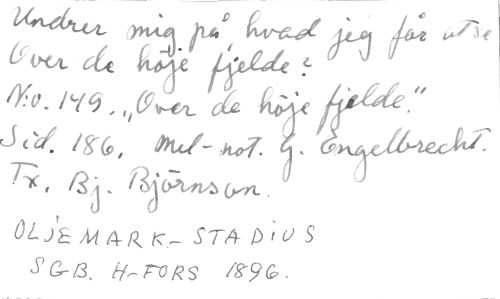 Undrer mig på, hvad jeg får at se
Over de höje fjelde?
N:o. 149. „Over de höje fjelde."
Sid. 186. mel-not. G. Engelbrecht.
Tx. Bj. Björnson.
OLJEMARK-STADIUS
SGB. H-FORS 1896.